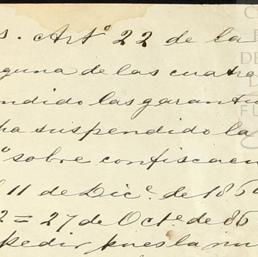 s. Arto 22 de la
guna de las cuatro
ndido las garantia
ha suspendido la
o "sobre confiscacio
l 11 de Dice. de 186
2 = 27 de Octe de 86
pedir pues la nu